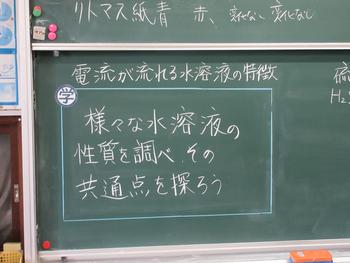 リトマス紙青 赤、変化なし 変化なし
電流が流れる水溶液の特徴
学
様々な水溶液の
性質を調べ、その
共通点を探ろう
硫
H₂